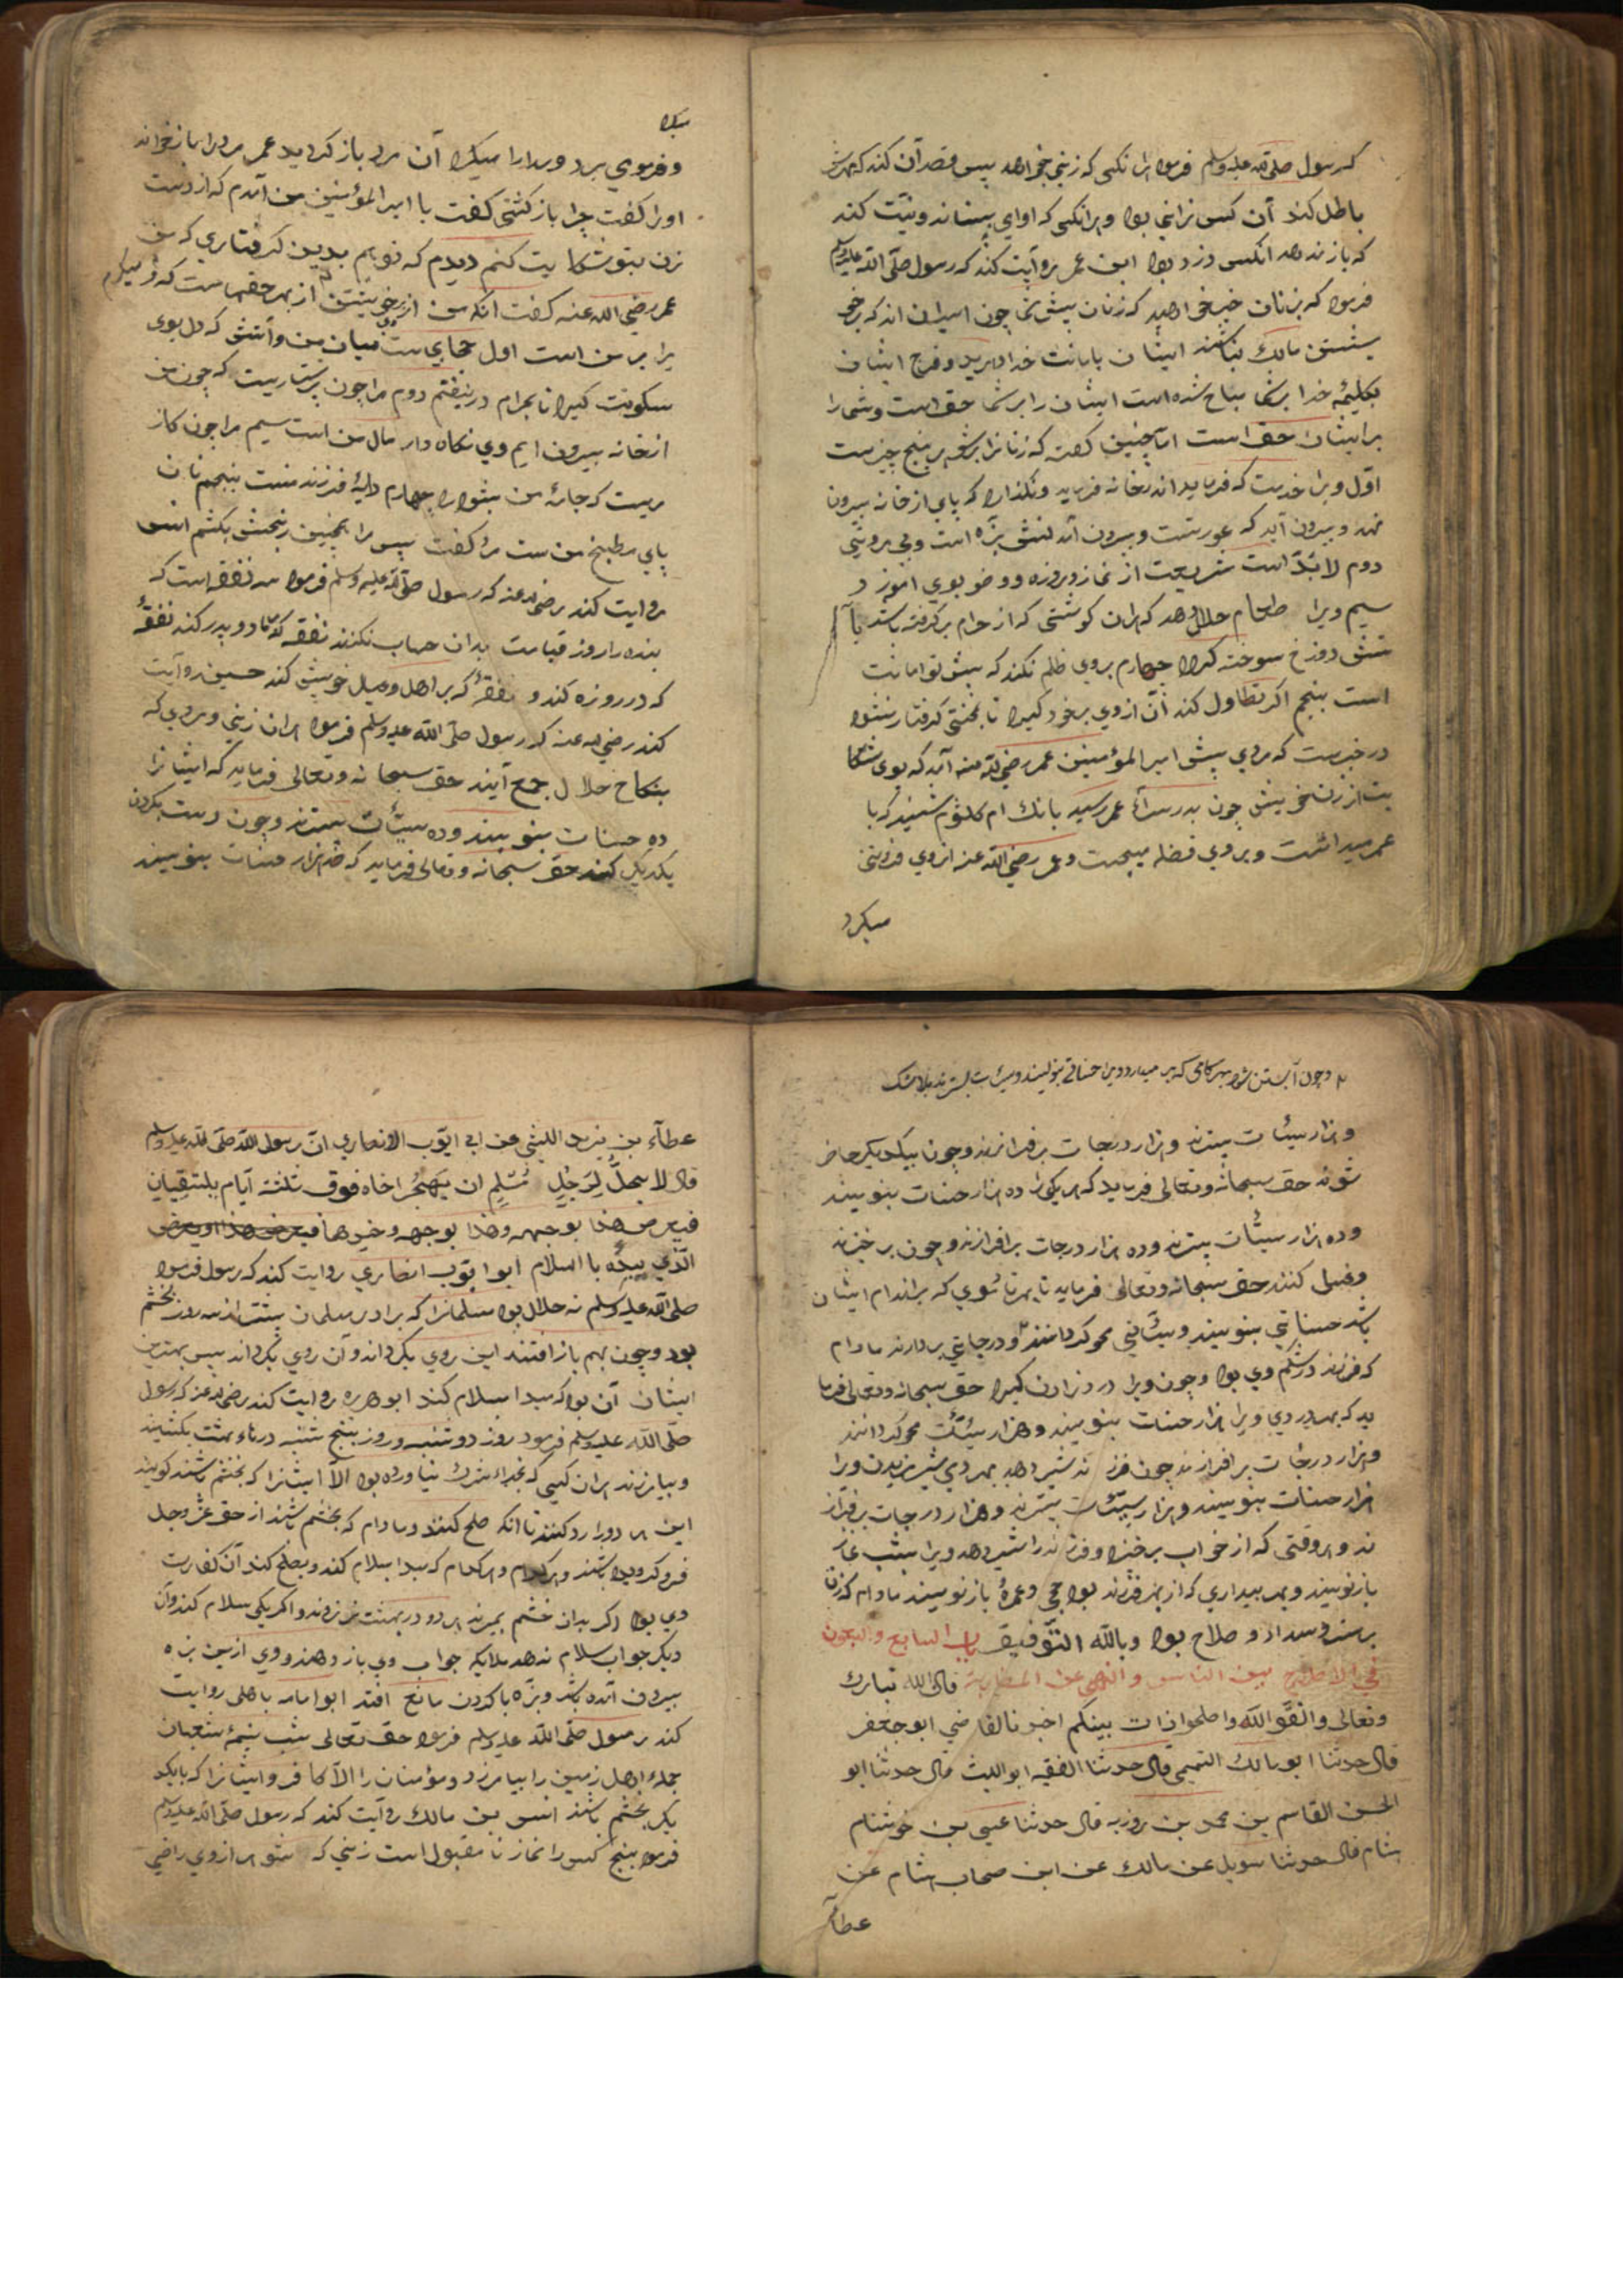 که رسول صلی الله علیه وسلم فرمود هرانکسی که زنی بخواهد پس قصد آن کند که مهرش
باطل کند آن کس زانی بود و هرانکسی که اوامی بستاند و نیت کند
که باز ندهد انکس دزد بود ابن عمر روآیت کند که رسول صلّی الله علیه وسلم
فرمود که بزنان خیر خواهید که زنان پیش شما چون اسیران اند که بر خو
یشتن مالک نباشند ایشان بامانت خدا دارید و فرج ایشان
بکلیمهٔ خدا بر شما مباح شده است ایشان را بر شما حق است و شما را
بر ایشان حق است اما چنین گفته که زنانرا بر شوهر پنج چیز ست
اوّل ویرا خدمت که فرماید اندر خانه فرماید و نگذارد که پای از خانه بیرون
نهد و بیرون آید که عورتست و بیرون آمدنش بزه است و بی مروتی
دوم لابدّ است شریعت از نماز و روزه و وضو بوی اموزد
سیم ویرا طعام حلال دهد که هران گوشتی که از حرام بر گرفته باشد بآ
تش دوزخ سوخته گردد چهارم بروی ظلم نکند که پیش تو امانت
است پنجم اگر تطاول کند آن ازوی بر خود گیرد تا بختی گرفتار نشود
در خبرست که مردی پیش امیر المؤمنین عمر رضی الله عنه آمد که بوی شکا
یت از زن خویش چون بدر سرأ عمر رسید بانک ام کلثوم شنید که با
عمر میداشت و بروی فضله میجست و عمر رضی الله عنه ازوی فروتنی
میکرد
میکرد
و فروي برد و مدارا میکرد آن مرد باز کردید عمر مردرا باز خواند
اورا کفت چرا باز کشتی کفت یا امیر المؤمنین من آمدم که از دست
زن بتو شکایت کنم دیدم که تو هم بدین گرفتاری که من
عمر رضی الله عنه کفت انکه من از خویشتن از بهر حقهاست که
برابر من است اول حجابی ست میان من و آتش که دل بوی
سکونت گیرد تا بحرام در نیفتم دوم مرا چون پرستاریست که چون من
از خانه بیرون ایم وی نگاه دار مال من است سیم مرا چون کاز
ریست که جامهٔ من بشوید چهارم دایهٔ فرزند منست پنجم نان
پای و طباخ من ست مرد کفت پس مرا همچنین رنجش بکشم انس
روایت کند رضی الله عنه که رسول صلّی الله علیه وسلم فرمود سه نفقه است که
بنده را روز قیامت بدان حساب نکنند نفقه که بر مادر و پدر کند نفقهٔ
که در روزه کند و نفقهٔ که بر اهل و عیال خویش کند حسین روآیت
کند رضی الله عنه که رسول صلّی الله علیه وسلم فرمود هران زنی و مردی که
بنکاح حلال جمع آیند حق سبحانه و تعالی فرماید که ایشانرا
ده حسنات بنویسند و ده سیّأت بسترند و چون دست بگردن
یکدیگر کنند حق سبحانه و تعالی فرماید که هزار حسنات بنویسند
و چون آبستن شود بهر گامی که بر میدارد ویرا حسناتی بنویسند و سیّئات بسترند بلا شک
و هزار سیّئات بسترند و هزار درجات بر فرازند و چون بیکدیکر حاضر
شوند حق سبحانه و تعالی فرماید که هر یکی را ده هزار حسنات بنویسند
و ده هزار سیّئات بسترند و ده هزار درجات بر افرازند و چون بر خیزند
و غسل کنند حق سبحانه و تعالی فرماید تا بهر تا موی که بر اندام ایشان
باشد حسناتی بنویسند و سیّئاتی محو گردانند و درجاتی بردارند مادام
که فرزند در شکم وی بود و چون ویرا درد زادن گیرد حق سبحانه و تعالی فرما
ید که بهر دردی ویرا هزار حسنات بنویسند و هزار سیّئات محو گردانند
و هزار درجات بر افرازند چون فرزند شیر دهد بهر دمی شیر مزیدن ویرا
هزار حسنات بنویسند و هزار سیّئات بسترند و هزار درجات بر فراز
ند و هر وقتی که از خواب بر خیزد و فرزند را شیر دهد ویرا بشب غاز
باز نویسند و بهر بیداری که از بهر فرزند بود حجی و عمرهٔ باز نویسند مادام که زن
برستر و سداد و صلاح بود وبالله التّوفیق باب السابع و البعون
في الاصلاح بین الناس والنهي عن المصارمة قال الله تبارك
وتعالى واتقوا الله واصلحوا ذات بينكم اخبرنا القاضي ابو جعفر
قال حدثنا ابو مالك التميمي قال حدثنا الفقيه ابو الليث قال حدثنا ابو
الحسن القاسم بن محمد بن روزبه قال حدثنا عيسى بن خوشنام
شام قال حدثنا سويل عن مالك عن ابن صحاب هشام عن
عطآء
عطآء بن يزيد الليثي عن ابي ايّوب الانصاري انّ رسول الله صلّى الله عليه وسلم
قال لا يحلّ لِرَجُلٍ مُسْلِمٍ ان يَهْجُرَ اخاه فوق ثلثة ايّام يلتقيان
فيعرض هذا بوجهه وهذا بوجهه وخيرهما
الّذي يبدُه باالسلام ابو ايّوب انصاري روایت کند که رسول فرمود
صلى الله عليه وسلم نه حلال بود مسلمانرا که برادر مسلمان بیشتر از سه روز بخشم
بود و چون بهم باز افتند این روی بگرداند و آن روی بگرداند پس بهترین
ایشان آن بود که مبدا بسلام کند ابو هریره روایت کند رضی الله عنه که رسول
صلّی الله علیه وسلم فرمود روز دوشنبه و روز پنج شنبه درهاء بهشت بکشیند
و بیامرزند هران کسی که بخداء شرك نیاورده بود الّا ایشانرا که بخشم باشند گویند
این هر دورا رد کنند تا انکه صلح کنند و مادام که بخشم باشند از حق عزّ وجل
فرو کردیده باشند و هر کدام که مبدا بسلام کند و بصلح کند آن کفارت
وی بود اگر بدان خشم بمیرند هر دو در بهشت نروند و اگر یکی سلام کند و آن
دیکر جواب سلام ندهد ملایکه جواب وی باز دهند و وی ازین بزه
بیرون آمده باشد و بزه با کردن مانع افتد ابو امامه باهلی روایت
کند رسول صلّی الله علیه وسلم فرمود حق تعالی شب نیمهٔ شعبان
جملهء اهل زمین را بیامرزد و مؤمنان را الّا کافر و ایشانرا که با یکد
یکر بخشم باشند انس بن مالك روآیت کند که رسول صلّی الله علیه وسلم
فرمود پنج کس را نماز نا مقبول است زنی که شوهر ازوی راضی